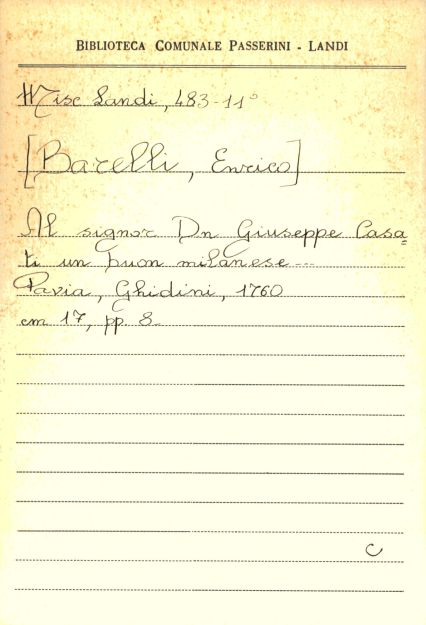 BIBLIOTECA COMUNALE PASSERINI - LANDI
Misc Landi, 483-11°
[Barelli, Enrico]
Al signor Dn Giuseppe Casa=
ti un buon milanese...
Pavia, Ghidini, 1760
cm 17, pp. 8
C